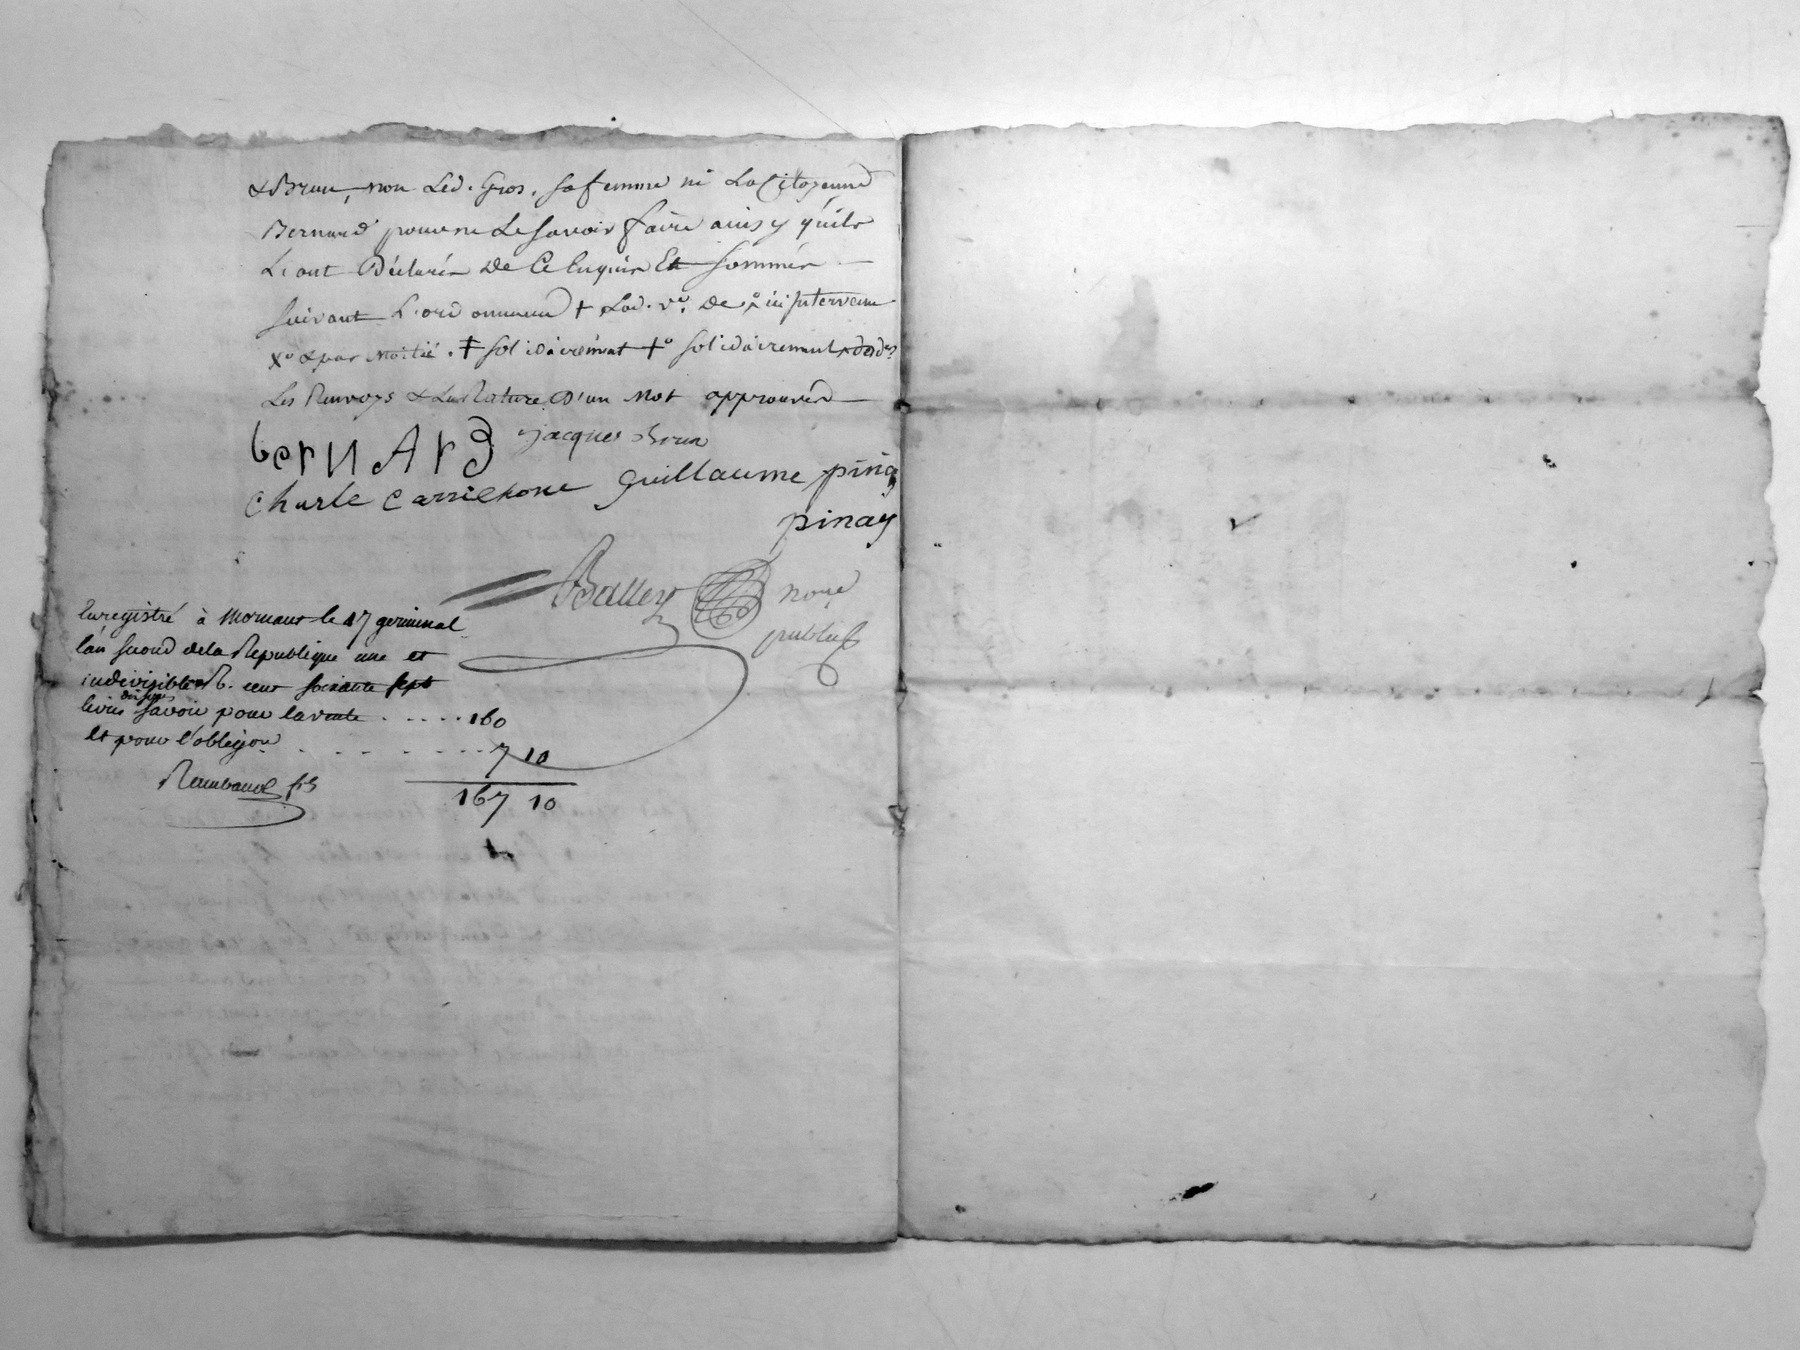 & Brun, non Led. Gros. sa femme ni La Citoyenne
Bernard pour ne Le savoir faire ainsy qu'ils
L'ont Déclarés de Ce Enquis Et sommés
suivant L'ordonnance + Lad. ve. de
& par Moitié. ‡ solidairement +o solidairement
Les Renvoys & La Rature D'un Mot approuvés
bernArd jacques Brun
Charle Carrichone guillaume pinay
pinay
Balley nore
public
Enregistré à Mornant le 17 germinal
l'an second de la Republique une et
indivisible R. cent soixante sept
livres dix sous savoir pour la vente ..... 160
et pour l'obligon ........ 7 10
Raimbaud fils 167 10